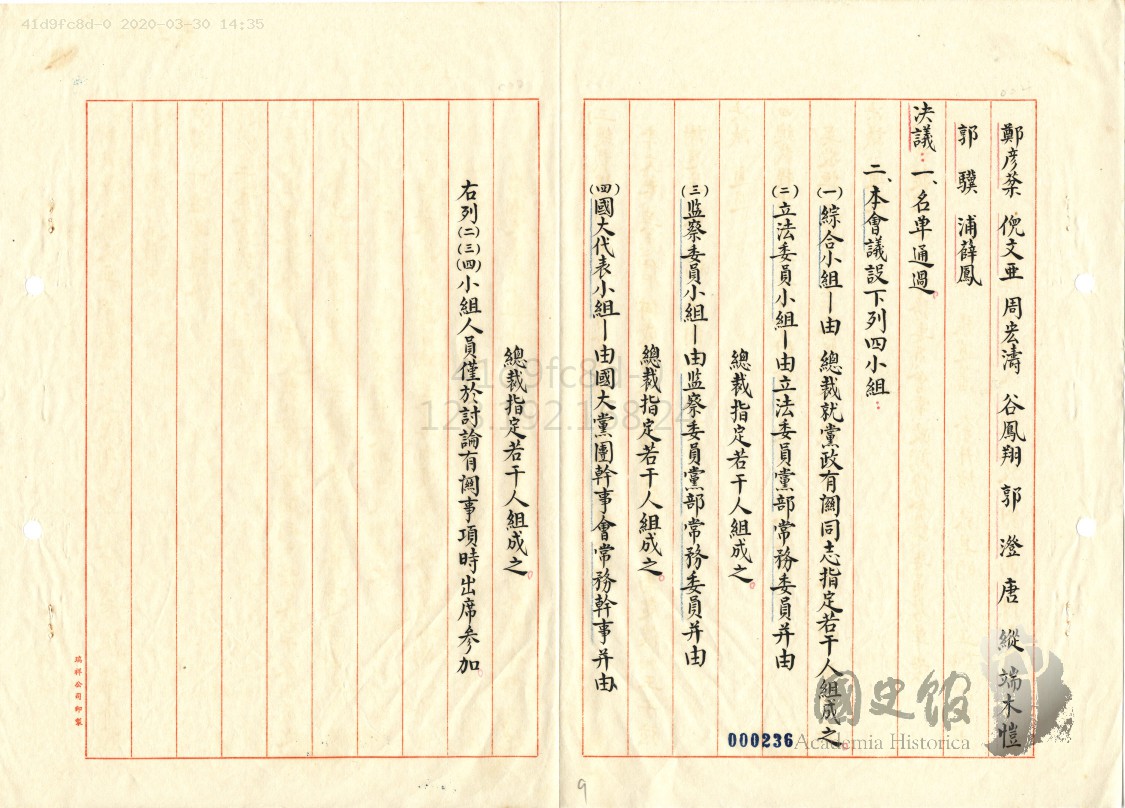 41d9fc8d-0 2020-03-30 14:35
鄭彥棻 倪文亜 周宏濤 谷鳳翔 郭澄 唐縱 端木愷
郭驥 浦薛鳳
決議：一、名单通過。
二、本會議設下列四小組：
(一)綜合小組－由 總裁就黨政有關同志指定若干人組成之。
(二)立法委員小組－由立法委員黨部常務委員并由
總裁指定若干人組成之。
(三)监察委員小組－由监察委員黨部常務委員并由
總裁指定若干人組成之。
(四)國大代表小組－由國大黨團幹事會常務幹事并由
總裁指定若干人組成之。
右列(二)(三)(四)小組人員僅於討論有關事項時出席参加。
瑞祥公司印製
41d9fc8d-0
國史館
Academia Historica
000236
9